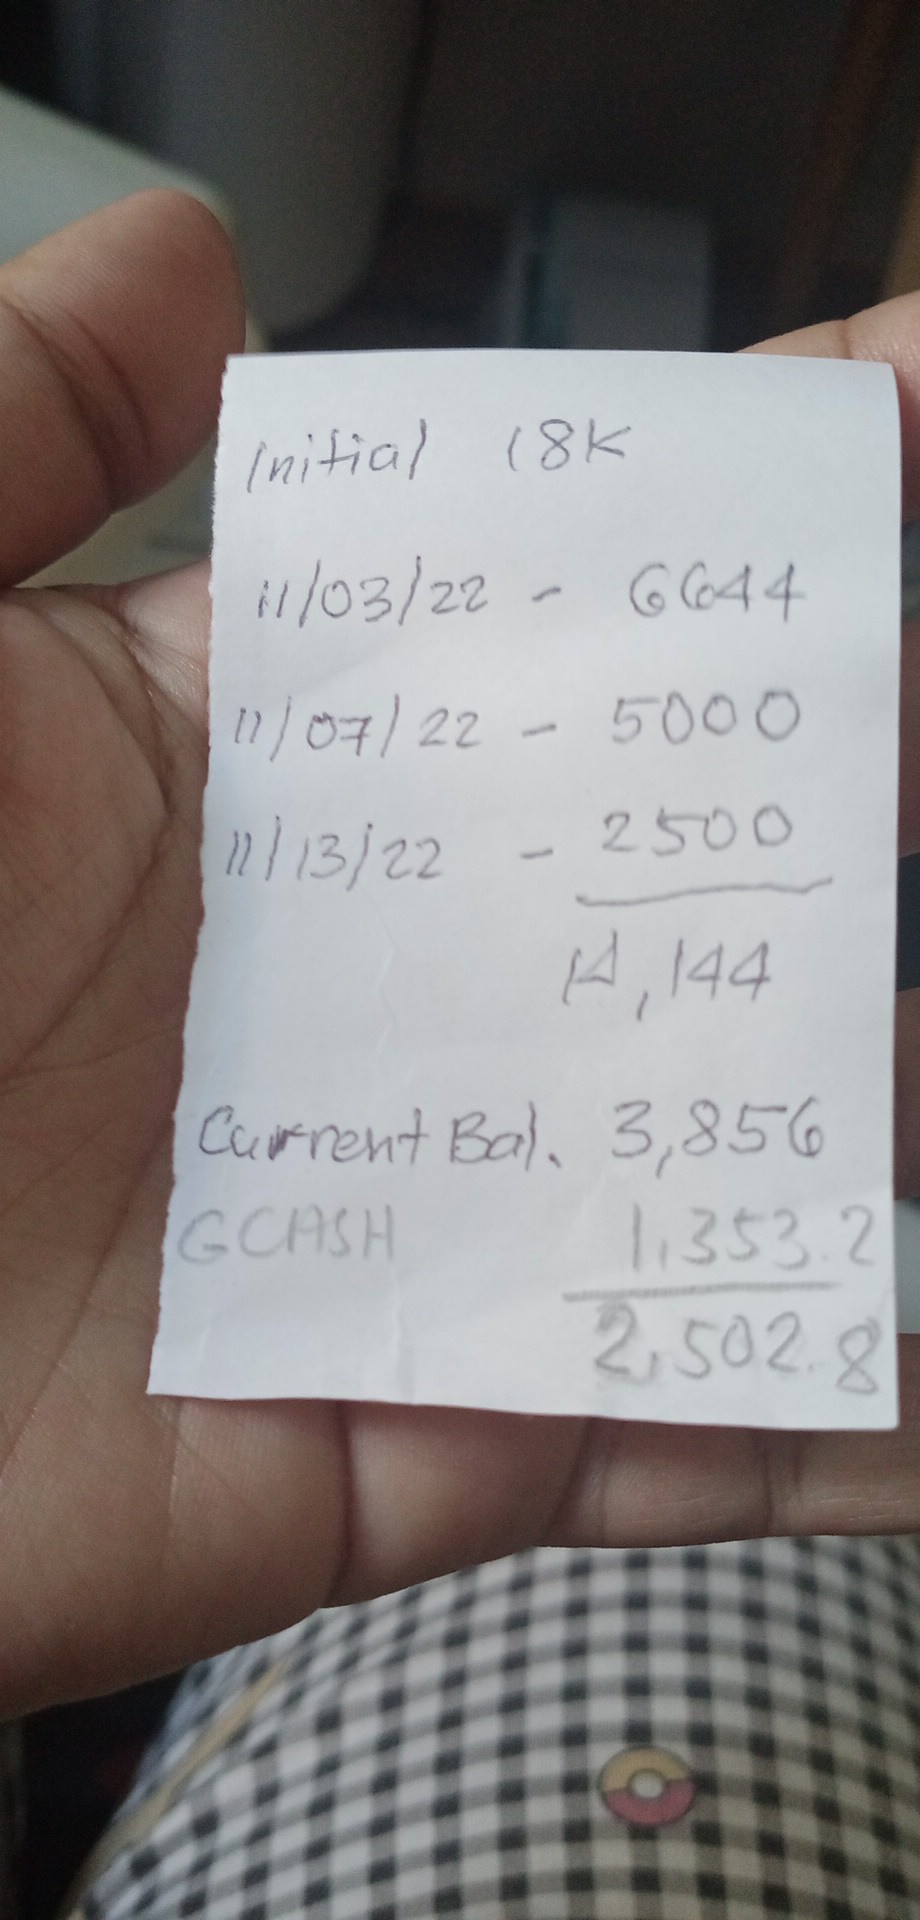 Initial 18K
11/03/22 - 6644
11/07/22 - 5000
11/13/22 - 2500
14,144
Current Bal. 3,856
GCASH 1,353.2
2,502.8